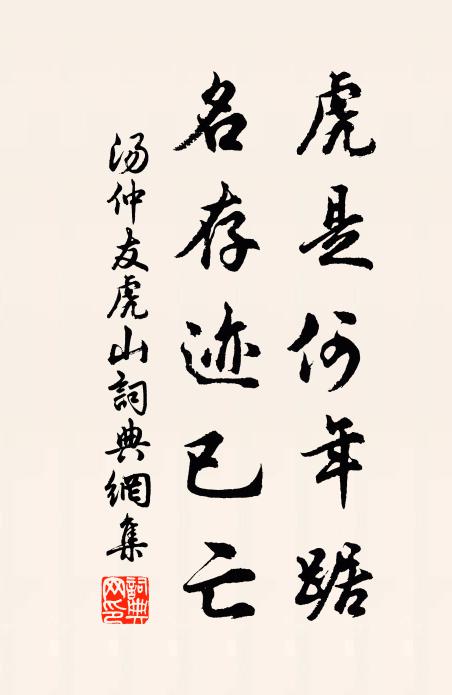 虎是何年踞
名存迹已亡
汤仲友虎山詞典網集
詞典
网印